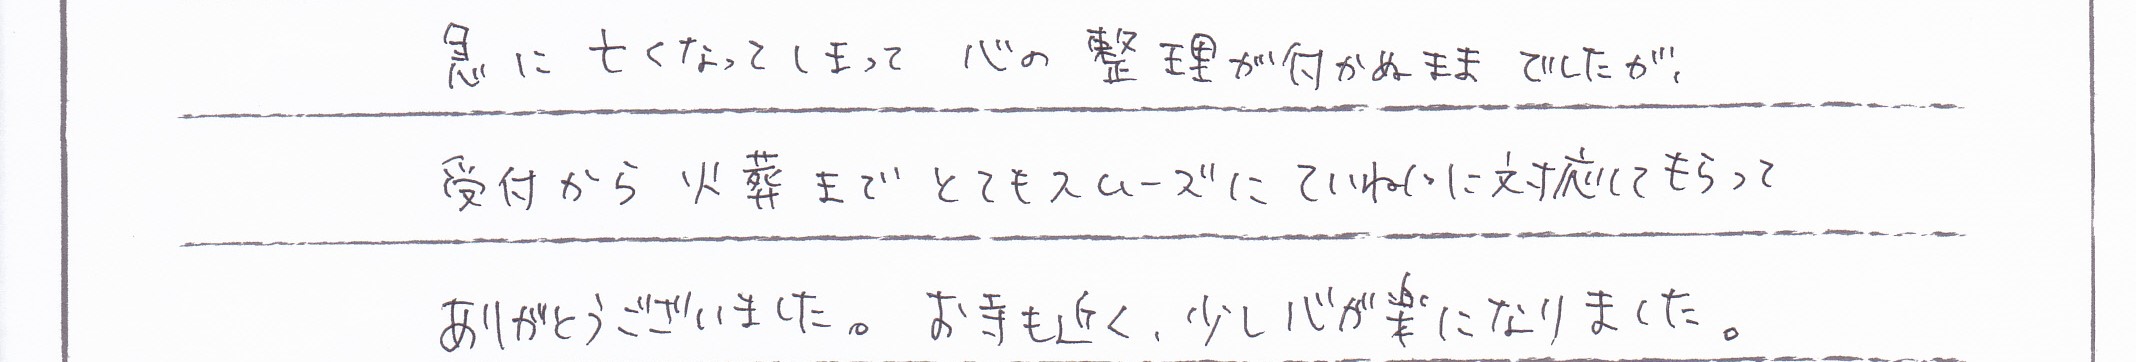 急に亡くなってしまって 心の整理が付かぬままでしたが、
受付から火葬までとてもスムーズにていねいに対応してもらって
ありがとうございました。お寺も近く、少し心が楽になりました。